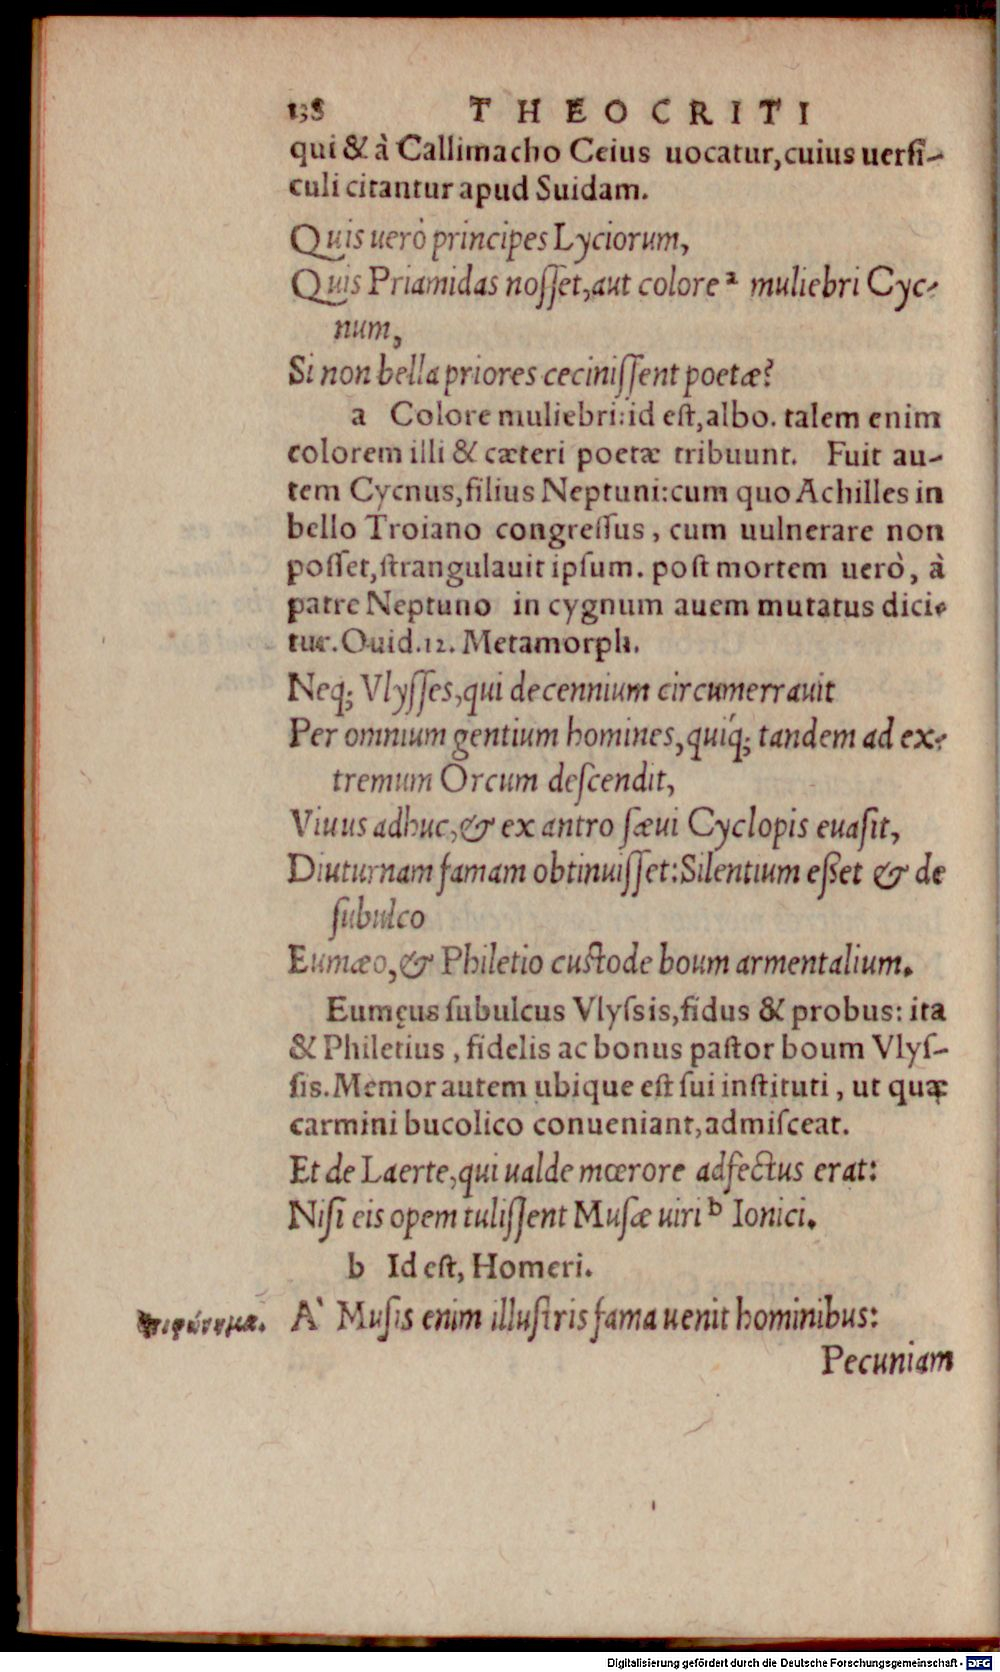 138 THEOCRITI
qui & à Callimacho Ceius uocatur, cuius uersi-
culi citantur apud Suidam.
Quis uerò principes Lyciorum,
Quis Priamidas nosset, aut colore a muliebri Cyc-
num,
Si non bella priores cecinissent poetæ?
a Colore muliebri: id est, albo. talem enim
colorem illi & cæteri poetæ tribuunt. Fuit au-
tem Cycnus, filius Neptuni: cum quo Achilles in
bello Troiano congressus, cum uulnerare non
posset, strangulauit ipsum. post mortem uerò, à
patre Neptuno in cygnum auem mutatus dici-
tur. Ouid. 12. Metamorph.
Neq; Vlysses, qui decennium circumerrauit
Per omnium gentium homines, quíq; tandem ad ex-
tremum Orcum descendit,
Viuus adhuc, & ex antro sæui Cyclopis euasit,
Diuturnam famam obtinuisset: Silentium eßet & de
subulco
Eumæo, & Philetio custode boum armentalium.
Eumęus subulcus Vlyssis, fidus & probus: ita
& Philetius, fidelis ac bonus pastor boum Vlys-
sis. Memor autem ubique est sui instituti, ut quæ
carmini bucolico conueniant, admisceat.
Et de Laerte, qui ualde mœrore adfectus erat:
Nisi eis opem tulissent Musæ uiri b Ionici.
b Id est, Homeri.
ἐπιφώνημα. A` Musis enim illustris fama uenit hominibus:
Pecuniam
Digitalisierung gefördert durch die Deutsche Forschungsgemeinschaft - DFG